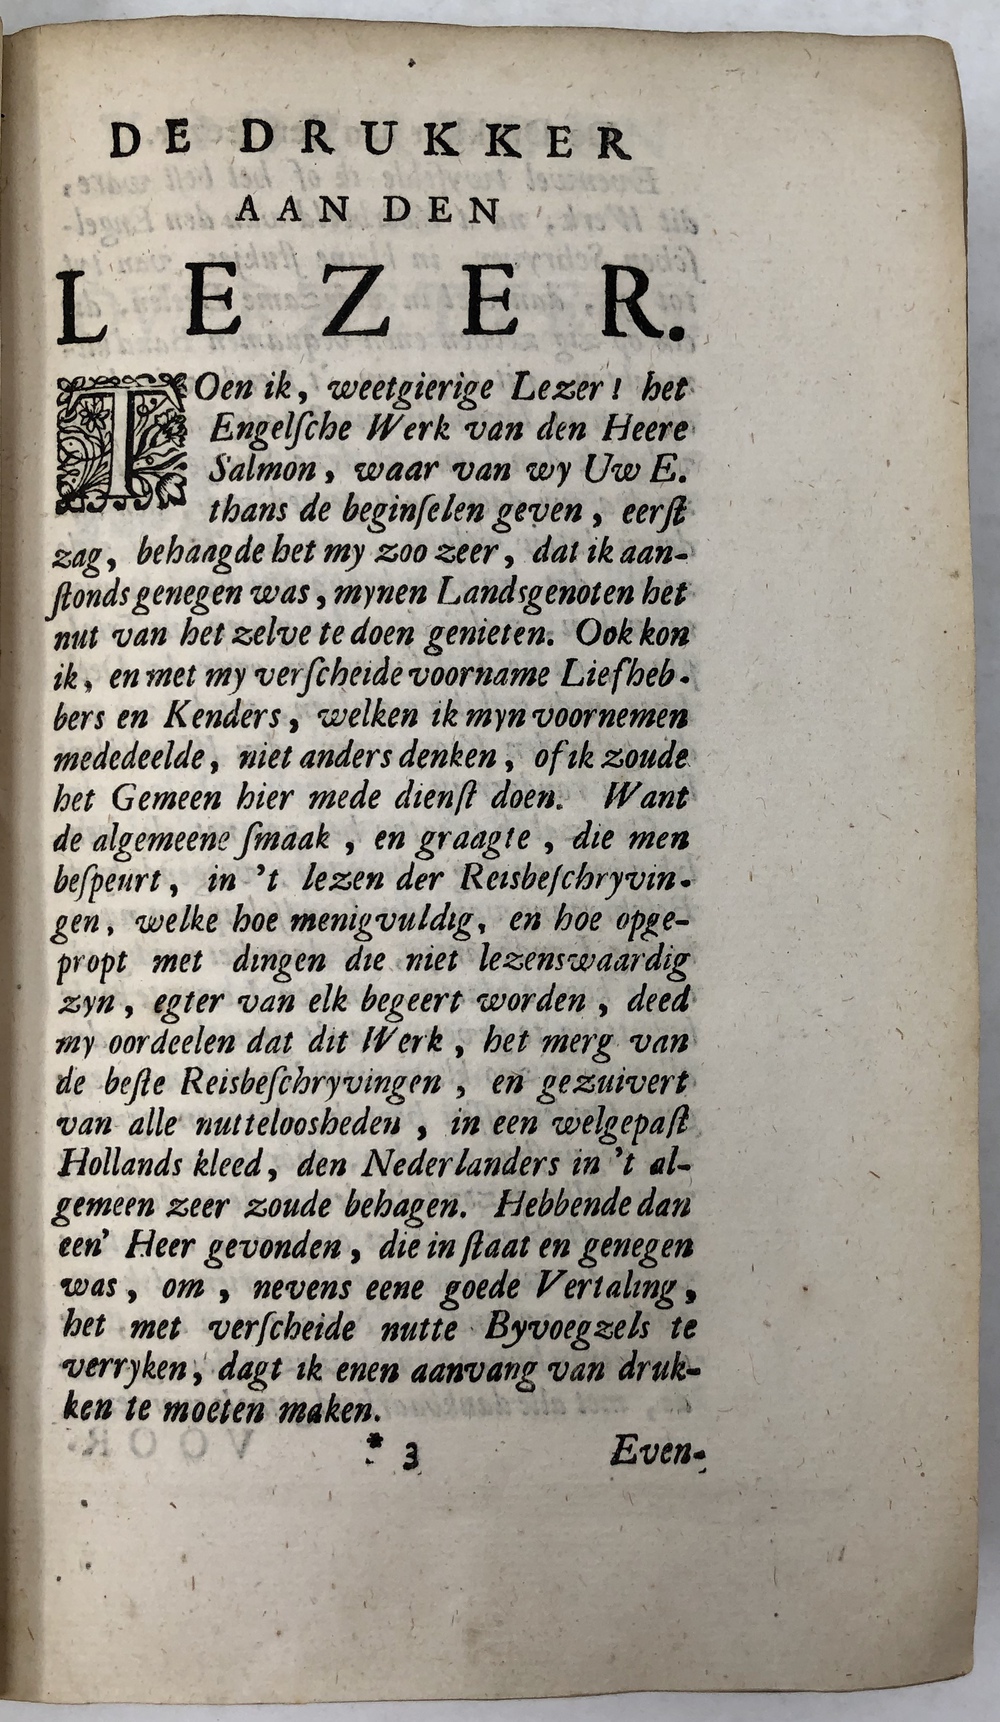 DE DRUKKER
AAN DEN
LEZER.
TOen ik, weetgierige Lezer! het
Engelſche Werk van den Heere
Salmon, waar van wy Uw E.
thans de beginſelen geven, eerſt
zag, behaagde het my zoo zeer, dat ik aan-
ſtonds genegen was, mynen Landsgenoten het
nut van het zelve te doen genieten. Ook kon
ik, en met my verſcheide voorname Liefheb-
bers en Kenders, welken ik myn voornemen
mededeelde, niet anders denken, of ik zoude
het Gemeen hier mede dienſt doen. Want
de algemeene ſmaak, en graagte, die men
beſpeurt, in 't lezen der Reisbeſchryvin-
gen, welke hoe menigvuldig, en hoe opge-
propt met dingen die niet lezenswaardig
zyn, egter van elk begeert worden, deed
my oordeelen dat dit Werk, het merg van
de beſte Reisbeſchryvingen, en gezuivert
van alle nutteloosheden, in een welgepaſt
Hollands kleed, den Nederlanders in 't al-
gemeen zeer zoude behagen. Hebbende dan
een' Heer gevonden, die in ſtaat en genegen
was, om, nevens eene goede Vertaling,
het met verſcheide nutte Byvoegzels te
verryken, dagt ik enen aanvang van druk-
ken te moeten maken.
* 3 Even-